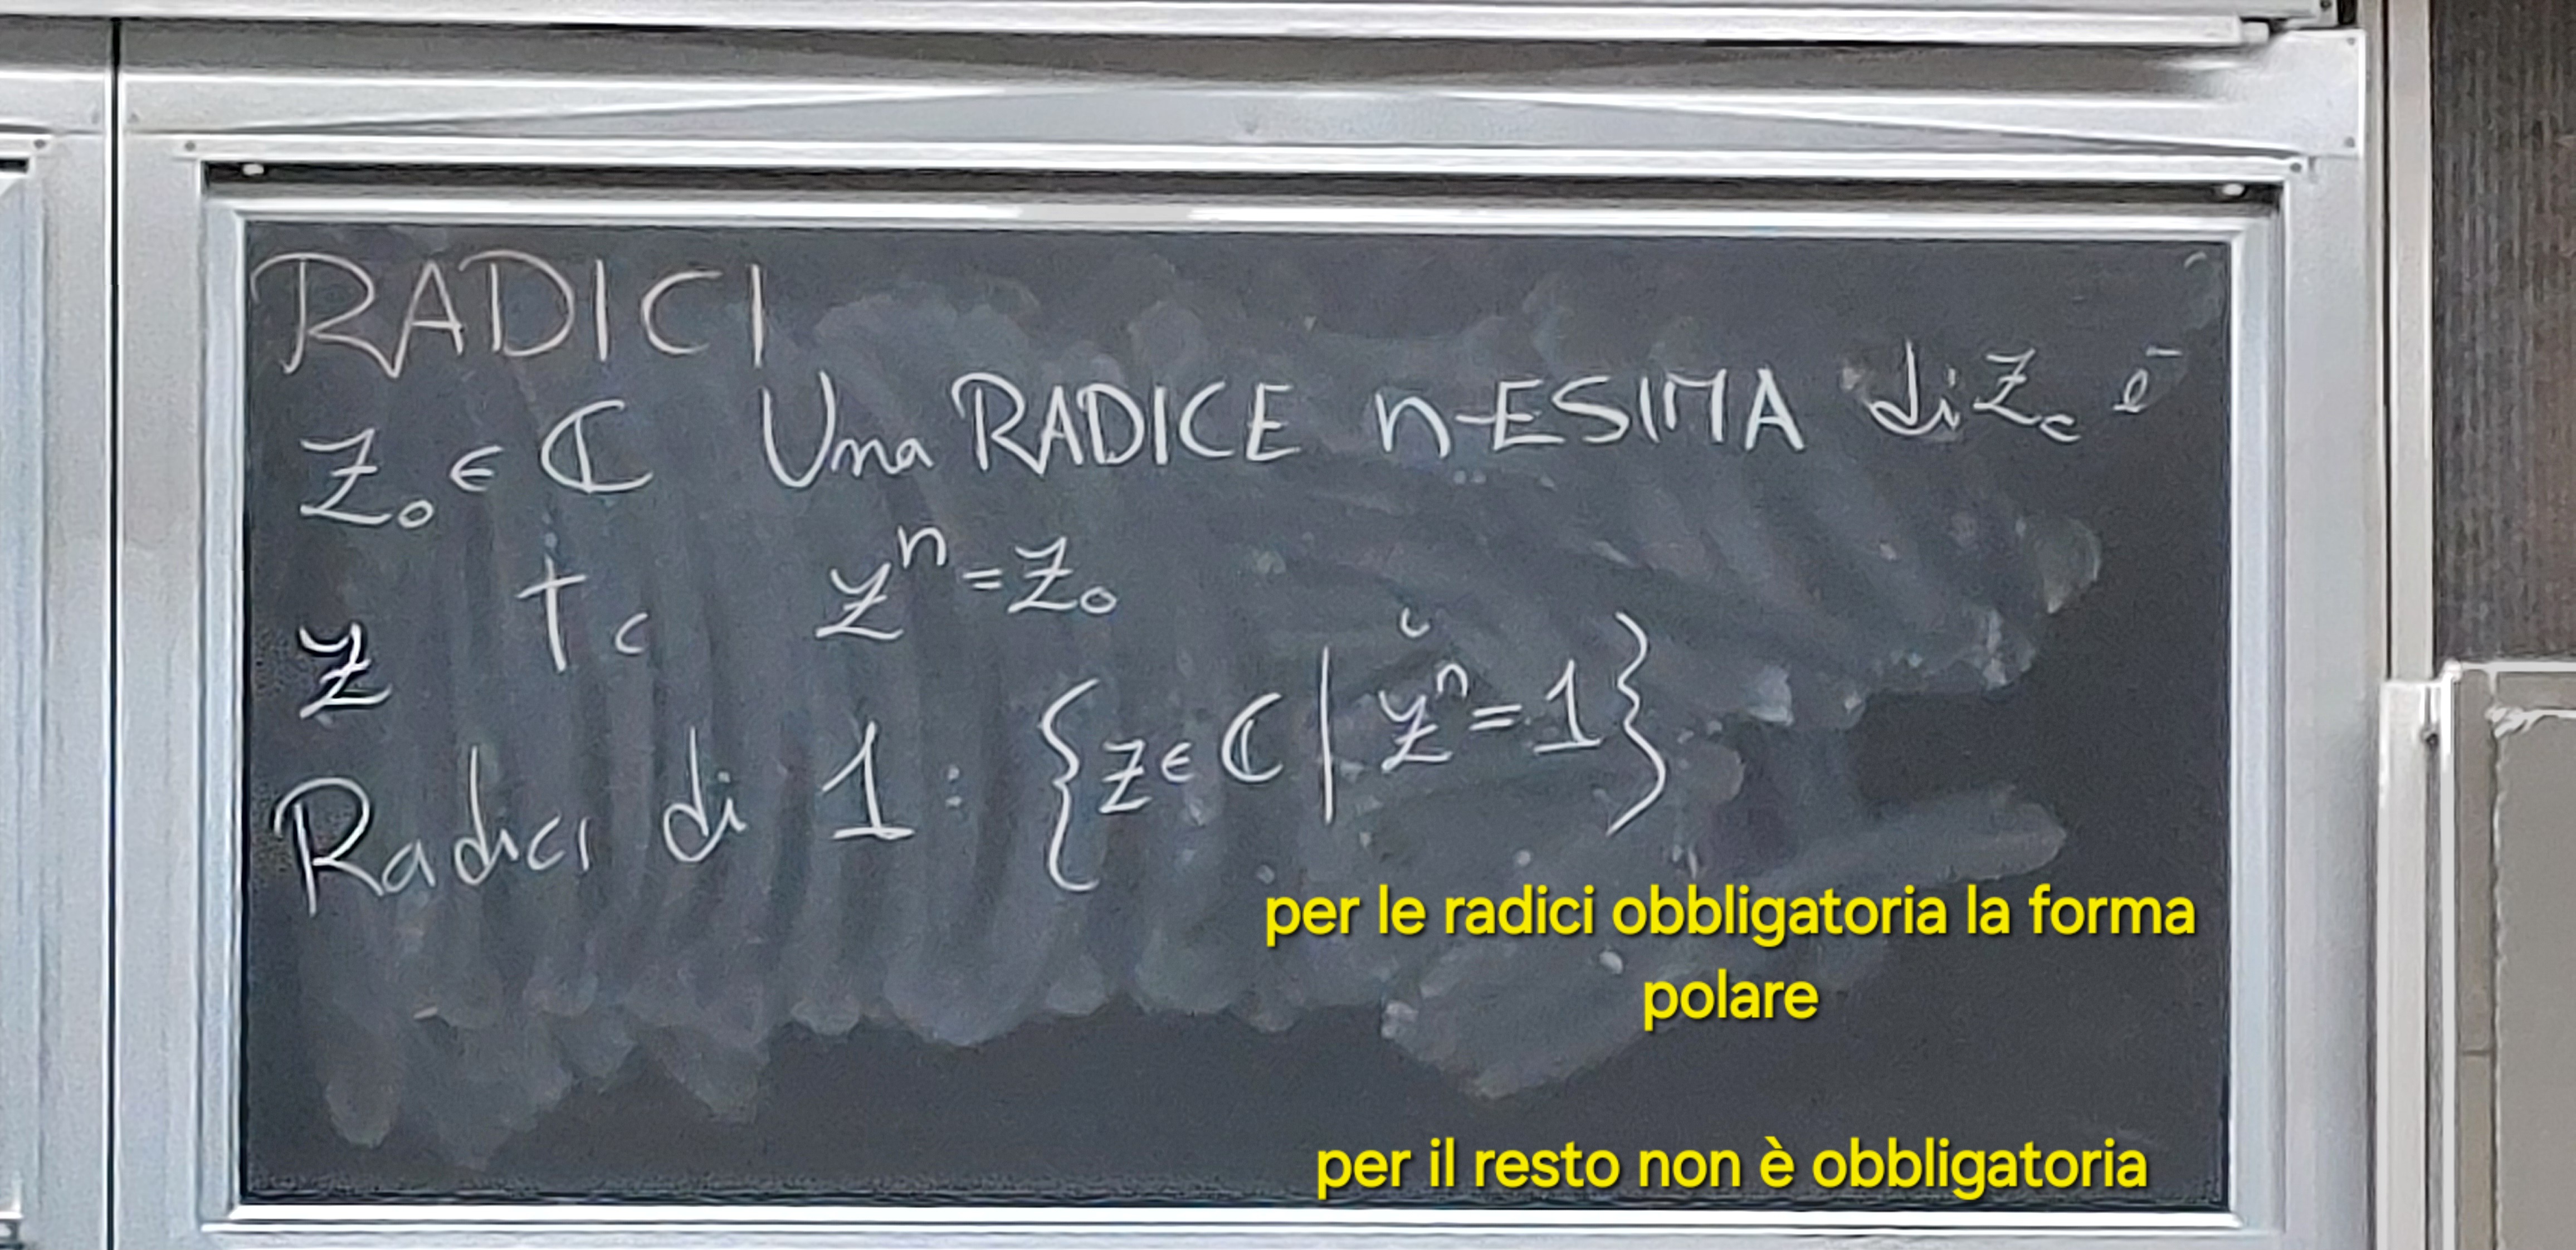 RADICI
Z₀ ∈ ℂ Una RADICE n-ESIMA di Z₀ è
z t.c zⁿ = z₀
Radici di 1 : {z ∈ ℂ | zⁿ = 1}
per le radici obbligatoria la forma
polare
per il resto non è obbligatoria